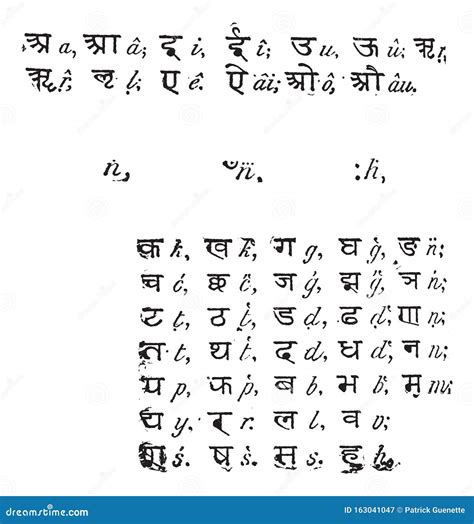 अ a, आ â; इ i, ई î; उ u, ऊ û; ऋ ṛ,
ॠ ṝ; ऌ ḷ; ए ê. ऐ âi; ओ ô, औ âu.
ṅ, ̐ n̈. :ḣ,
क k, ख k̔, ग g, घ g̔, ङ n̈;
च ć, छ c̔, ज ǵ, झ g̔, ञ ń;
ट ṭ, ठ ṭ̔, ड ḍ, ढ ḍ̔, ण ṇ;
त t, थ t̔, द d, ध d̔, न n;
प p, फ p̔, ब b, भ b̔, म m;
य y. र r. ल l, व v;
श ś. ष ṡ. स s. ह h.
dreamstime.com
ID 163041047 © Patrick Guenette